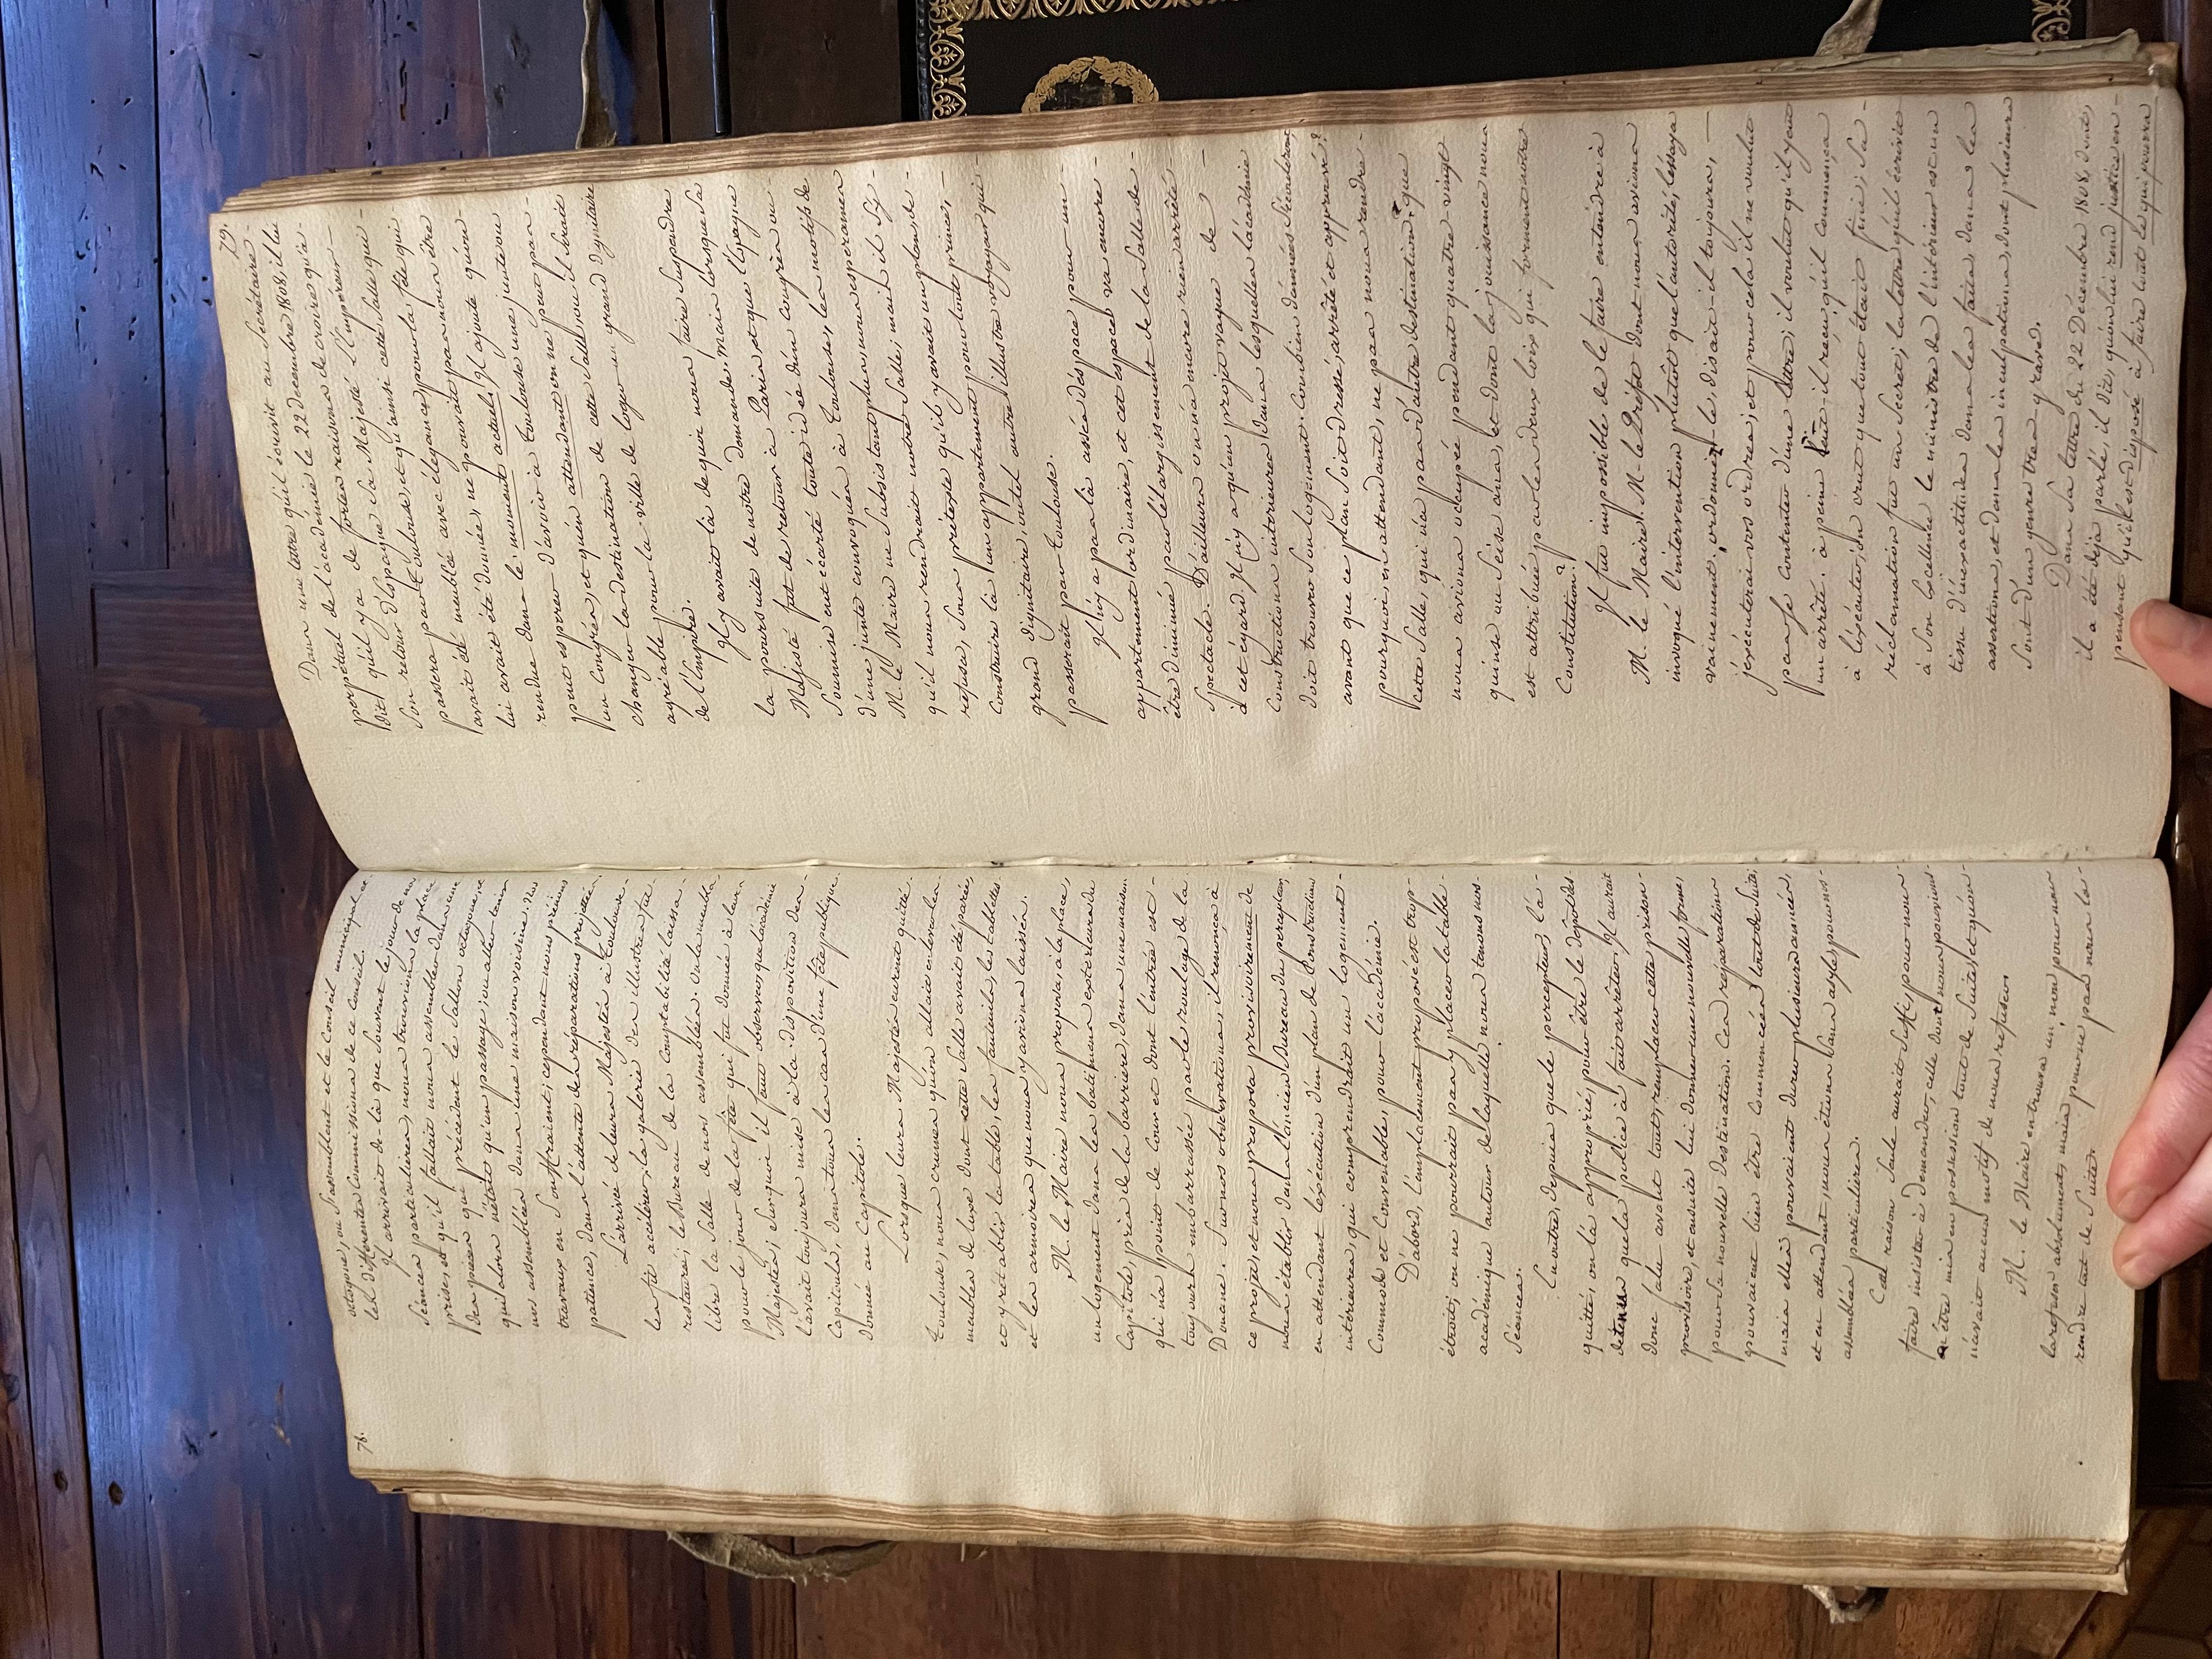 78.
octogone, ou s'assemblent et le Conseil municipal et
les differentes Commissions de ce Conseil.
Il arrivait de là que souvent les jours de nos
séances particulieres, nous trouvions la place
prise, et qu'il fallait nous assembler dans une
des pièces qui précédent le Sallon octogone, et
qui alors n'était qu'un passage; ou aller tenir
nos assemblées dans une maison voisine. Nos
travaux en souffraient; cependant nous prîmes
patience, dans l'attente des réparations projettées.
L'arrivée de leurs Majestés à Toulouse
les fit accélerer; la galerie des illustres fut
restaurée, le Bureau de la Comptabilité laissa
libre la Salle de nos assemblées. On la meubla
pour le jour de la fête qui fut donnée à leurs
Majestés; surquoi il faut observer que l'académie
l'avait toujours mise à la disposition des
Capitouls, dans tous les cas d'une fête publique
donnée au Capitole.
Lorsque leurs Majestés eurent quitté
Toulouse, nous crumes qu'on allait enlever les
meubles de luxe dont cette Salle avait été parée,
et y rétablir la table, les fauteuils, les tablettes
et les armoires que nous y avions laissés.
M. le Maire nous proposa, à la place,
un logement dans les batimens exterieurs du
Capitole, près de la barriere, dans une maison
qui n'a point de Cour et dont l'entrée est
toujours embarrassée par le roulage de la
Douane. Sur nos observations, il renonça à
ce projet, et nous proposa provisoirement de
nous établir dans l'ancien Bureau du percepteur,
en attendant l'exécution d'un plan de Construction
intérieures, qui comprendrait un logement
Commode et Convenable, pour l'académie.
D'abord, l'emplacement proposé est trop
étroit; on ne pourrait pas y placer la table
académique autour de laquelle nous tenons nos
séances.
En outre, depuis que le percepteur, l'a
quitté, on l'a approprié, pour être le dépôt des
détenus que la police a fait arrêter; Il aurait
donc falu avant tout, remplacer cette prison
provisoire, et ensuite lui donner une nouvelle forme,
pour sa nouvelle destination. Ces réparations
pouvaient bien être commencées tout de suite,
mais elles pouvaient durer plusieurs années,
et en attendant, nous étions sans asyle pour nos
assemblées particulieres.
Cette raison seule aurait suffi pour nous
faire insister à demander, celle dont nous pouvions
être mis en possession tout de suite, et qu'on
n'avait aucun motif de nous refuser.
M. le Maire en trouva un, non pour nous
la refuser absolument, mais pour ne pas nous la
rendre tout de suite.
79.
Dans une lettre qu'il écrivit au Secrétaire
perpétuel de l'académie le 22 Decembre 1808, il lui
dit qu'il y a de fortes raisons de croire qu'à
son retour d'Espagne Sa Majesté L'empéreur
passera par Toulouse, et qu'ainsi cette Salle qui
avait été meublée avec élégance pour la fête qui
lui avait été donnée, ne pouvait pas nous être
rendue dans le moment actuel; Il ajoute qu'on
peut espérer d'avoir à Toulouse une junte ou
un Congrès, et qu'en attendant on ne peut pas
changer la destination de cette Salle, ou il serait
agréable pour la ville de loger un grand Dignitaire
de l'Empire.
Il y avait là de quoi nous faire suspendre
la poursuite de notre demande; Mais lorsque Sa
Majesté fut de retour à Paris, et que l'Espagne
soumise eut écarté toute idée d'un congrès ou
d'une junte convoqués à Toulouse, les motifs de
M. le Maire ne subsistant plus, nous esperames
qu'il nous rendrait notre Salle; mais il s'y
refusa, sous prétexte qu'il y avait un plan de
construire là un appartement pour tout prince,
grand dignitaire, ou tel autre illustre voyageur qui
passerait par Toulouse.
Il n'y a pas là assés d'espace pour un
appartement ordinaire, et cet espace va encore
être diminué par l'élargissement de la Salle de
Spectacle. D'ailleurs on n'a encore rien arrêté
à cet égard. Il n'y a qu'un projet vague de
Constructions intérieures, dans lesquelles l'académie
doit trouver son logement. Combien d'années s'écouleront
avant que ce plan soit dressé, arrêté et approuvé?
pourquoi, en attendant, ne pas nous rendre
cette Salle, qui n'a pas d'autre destination, que
nous avions occupée pendant quatre-vingt
quinse ou seise ans, et dont la jouissance nous
est attribuée par les deux loix qui forment notre
Constitution?
Il fut impossible de le faire entendre à
M. le Maire. M. le Préfet dont nous avions
invoqué l'intervention plutôt que l'autorité, l'essaya
vainement; ordonnez-le, disait-il toujours,
j'exécuterai vos ordres; et pour cela il ne voulut
pas se contenter d'une lettre; il voulut qu'il y eut
un arrêté. à peine l'eut-il reçu, qu'il commença
à l'exécuter; on crut que tout était fini; sa
réclamation fut un secret; la lettre qu'il écrivit
à son Excellence le ministre de l'intérieur est un
tissu d'inexactitudes dans les faits, dans les
assertions, et dans les inculpations, dont plusieurs
sont d'un genre très grave.
Dans sa lettre du 22 Décembre 1808, dont
il a été déjà parlé, il dit, qu'on lui rend justice en
pensant qu'il est disposé à faire tout ce qui pourra